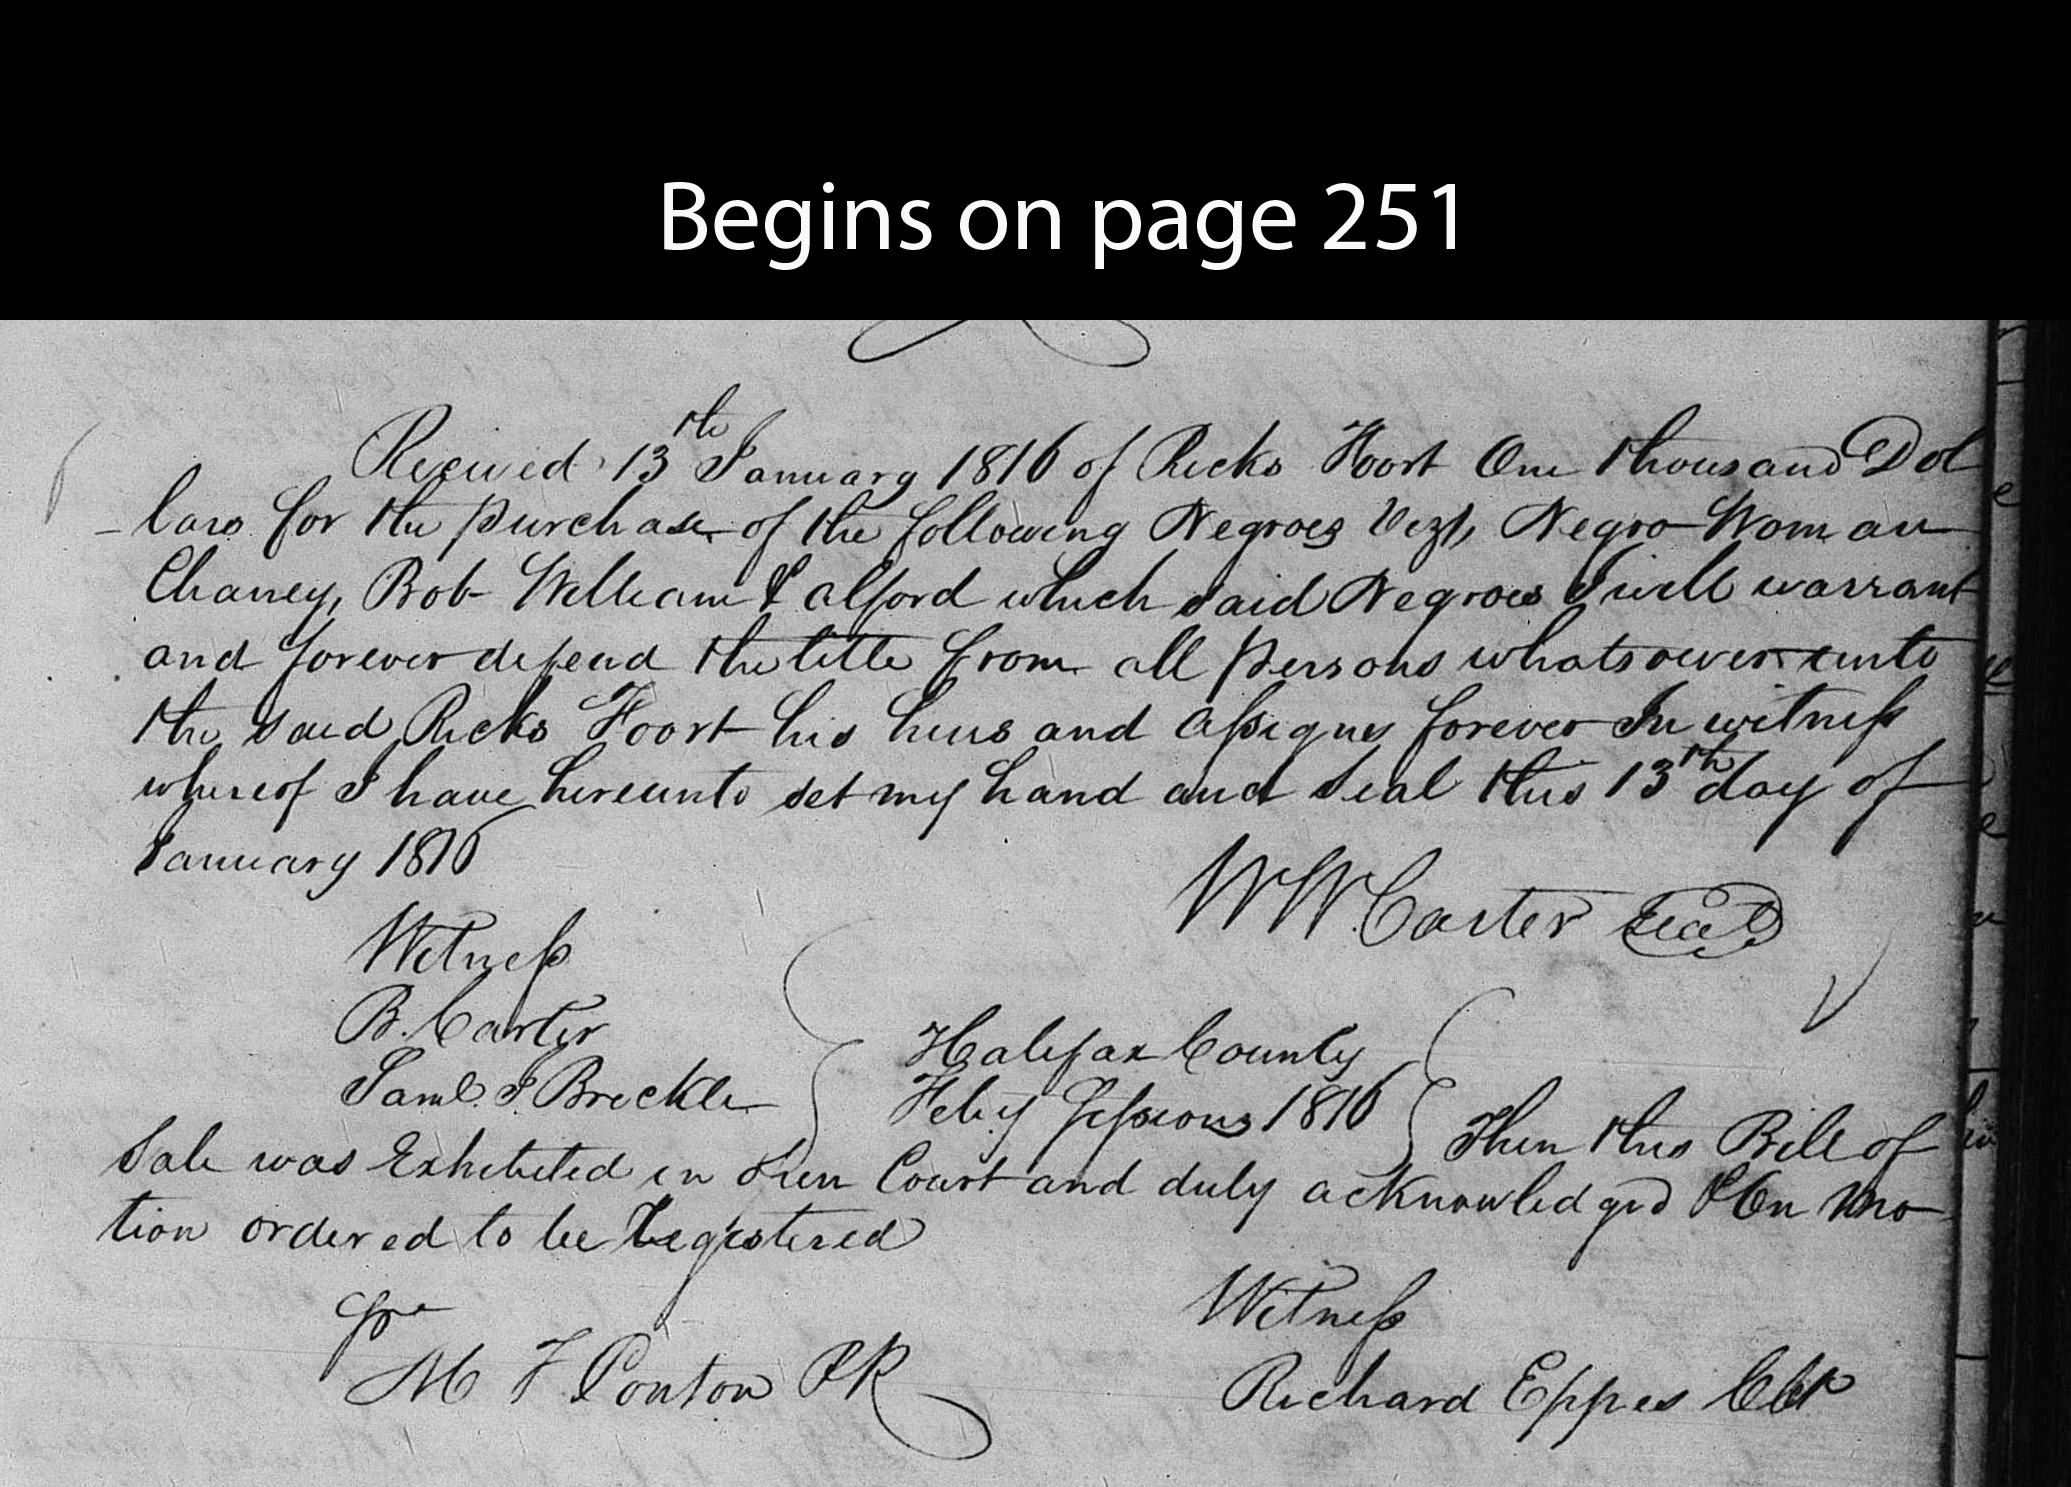 Begins on page 251
Received 13th January 1816 of Ricks Foort One thousand Dol
-lars for the purchase of the following Negroes Vizt, Negro Woman
Chaney, Bob William & alford which said Negroes I will warrant
and forever defend the title from all persons whatsoever unto
the said Ricks Foort his heirs and assigns forever In witness
whereof I have hereunto set my hand and Seal this 13th day of
January 1816
W W. Carter Seal
Witness
B. Carter
Saml. J Brickle
Halifax County
Feby Sessions 1816
Then this Bill of
Sale was Exhibited in open Court and duly acknowledged & On mo
tion ordered to be Registered
M F Ponton PR
Witness
Richard Eppes Clk